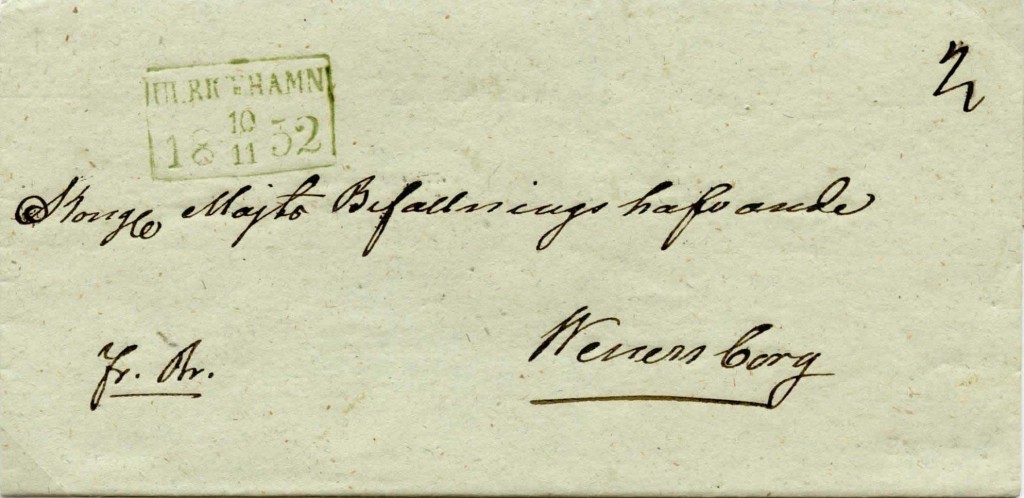 ULRICEHAMN
18 10/11 32
Kongl Majts Befallningshafvande
Wenersborg
Fr. Br.